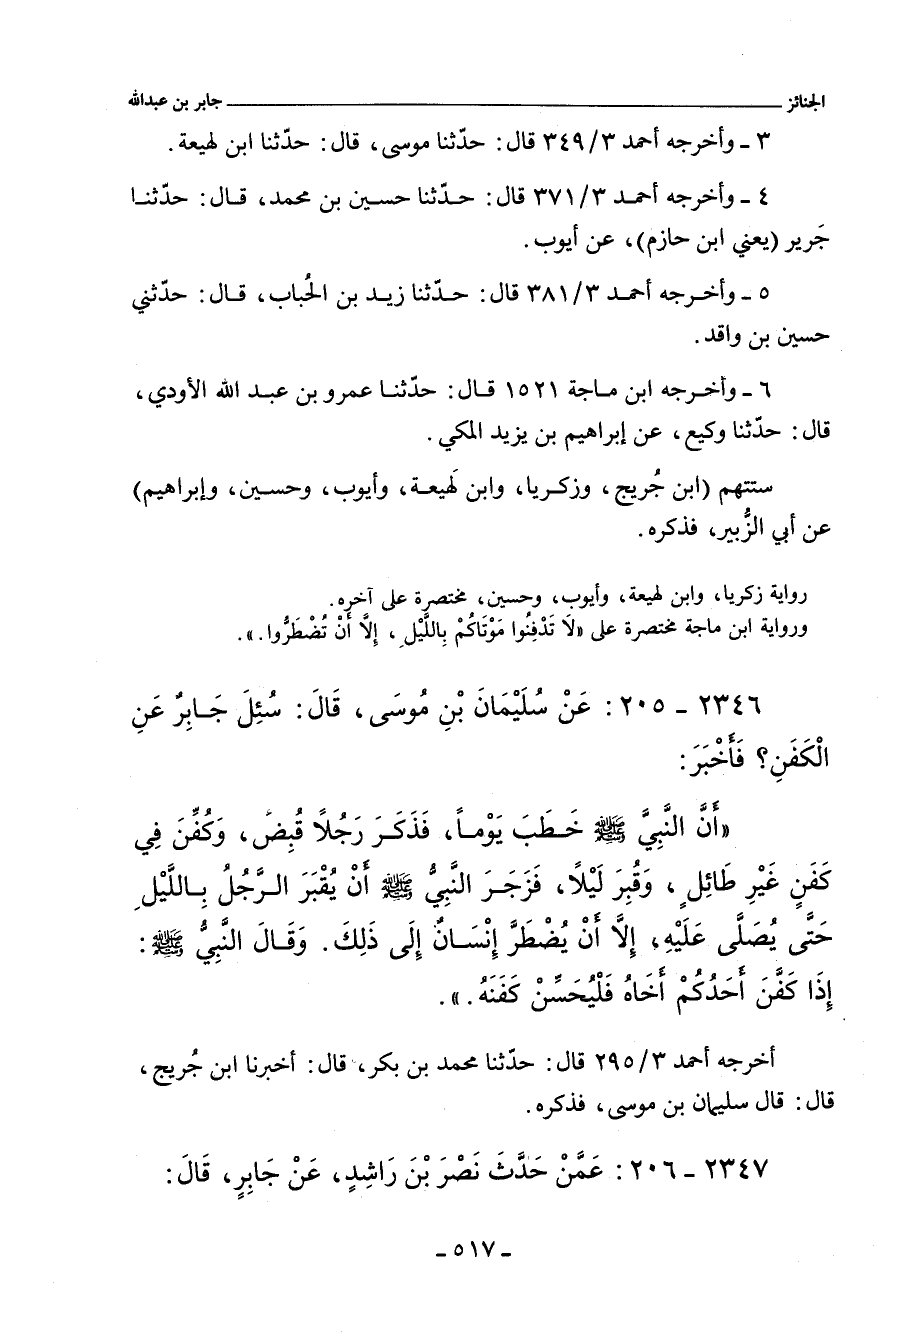 الجنائز ــــــــــــــــــــــــــــــــــــ جابر بن عبدالله
٣ ـ وأخرجه أحمد ٣/ ٣٤٩ قال: حدّثنا موسى، قال: حدّثنا ابن لهيعة.
٤ ـ وأخرجه أحمـد ٣/ ٣٧١ قال: حـدّثنا حسـين بن محمد، قـال: حدّثنـا
جَرير (يعني ابن حازم)، عن أيوب.
٥ ـ وأخـرجه أحمـد ٣/ ٣٨١ قال: حـدّثنا زيـد بن الحُباب، قـال: حدّثني
حسين بن واقد.
٦ ـ وأخـرجه ابن مـاجة ١٥٢١ قـال: حدّثنـا عمرو بن عبـد الله الأودي،
قال: حدّثنا وكيع، عن إبراهيم بن يزيد المكي.
ستتهم (ابن جُريج، وزكـريا، وابن لَهيعـة، وأيوب، وحسـين، وإبراهيم)
عن أبي الزُّبير، فذكره.
رواية زكريا، وابن لهيعة، وأيوب، وحسين، مختصرة على آخره.
ورواية ابن ماجة مختصرة على «لَا تَدْفِنُوا مَوْتَاكُمْ بِاللَّيْلِ، إِلَّا أَنْ تُضْطَرُّوا.».
٢٣٤٦ ـ ٢٠٥: عَنْ سُلَيْمَانَ بْنِ مُوسَى، قَالَ: سُئِلَ جَـابِرٌ عَنِ
الْكَفَنِ؟ فَأَخْبَرَ:
«أَنَّ النَّبِيَّ ﷺ خَـطَبَ يَوْمـاً، فَذَكَـرَ رَجُلاً قُبِضَ، وَكُفِّنَ فِي
كَفَنٍ غَيْرِ طَائِلٍ، وَقُبِرَ لَيْلاً، فَزَجَرَ النَّبِيُّ ﷺ أَنْ يُقْبَرَ الـرَّجُلُ بِـاللَّيْلِ
حَتَّى يُصَلَّى عَلَيْهِ، إِلَّا أَنْ يُضْطَرَّ إِنْسَـانٌ إِلَى ذَلِكَ. وَقَالَ النَّبِيُّ ﷺ:
إِذَا كَفَّنَ أَحَدُكُمْ أَخَاهُ فَلْيُحَسِّنْ كَفَنَهُ.».
أخرجه أحمد ٣/ ٢٩٥ قال: حدّثنا محمد بن بكر، قال: أخبرنا ابن جُريج،
قال: قال سليمان بن موسى، فذكره.
٢٣٤٧ ـ ٢٠٦: عَمَّنْ حَدَّثَ نَصْرَ بْنَ رَاشِدٍ، عَنْ جَابِرٍ، قَالَ:
ـ ٥١٧ ـ